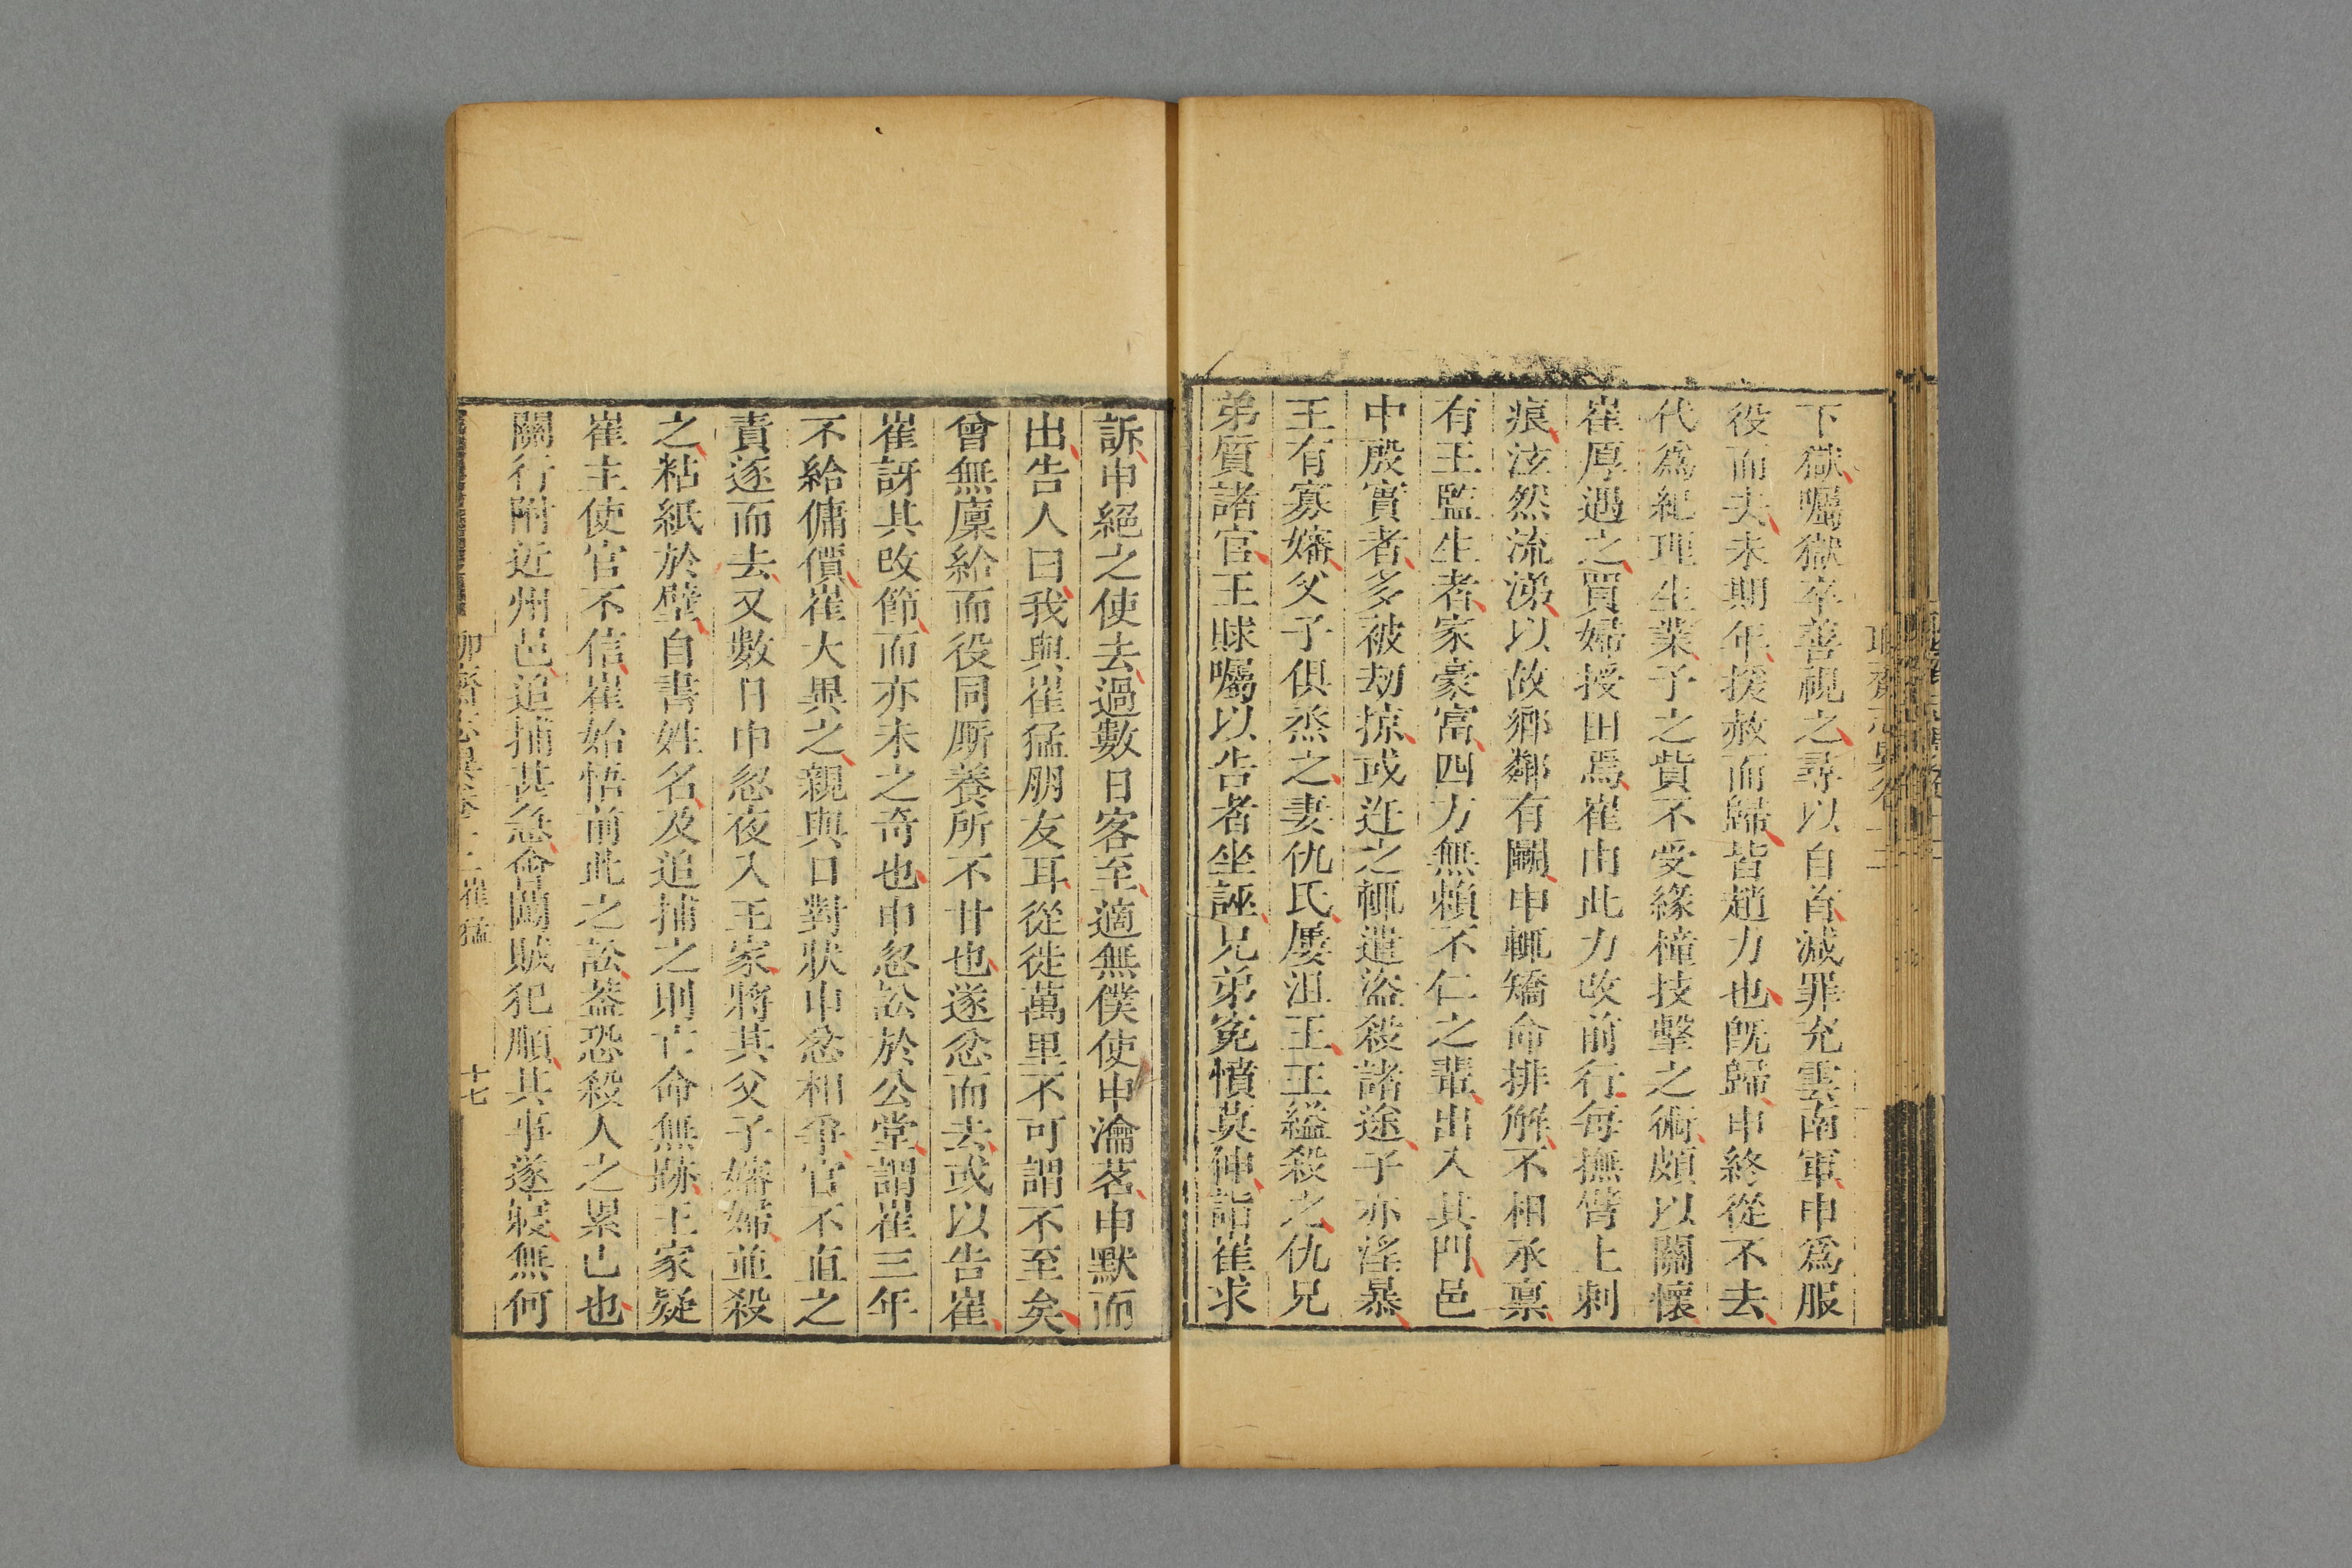 下獄囑獄卒善視之尋以自首減罪充雲南軍申爲服
役而去未期年援赦而歸皆趙力也旣歸申終從不去
代爲紀理生業予之貲不受緣橦技擊之術頗以關懷
崔厚遇之買婦授田焉崔由此力改前行每撫臂上刺
痕泫然流涕以故鄉鄰有鬬申輒矯命排解不相承稟
有王監生者家豪富四方無賴不仁之輩出入其門邑
中殷實者多被刼掠或迕之輒遣盜殺諸途子亦淫暴
王有寡嬸父子俱烝之妻仇氏屢沮王王縊殺之仇兄
弟質諸官王賕囑以告者坐誣兄弟寃憤莫伸詣崔求
訴申絕之使去過數日客至適無僕使申瀹茗申默而
出告人曰我與崔猛朋友耳從徙萬里不可謂不至矣
曾無廩給而役同厮養所不甘也遂忿而去或以告崔
崔訝其改節而亦未之奇也申忽訟於公堂謂崔三年
不給傭價崔大異之親與口對狀申忿相爭官不直之
責逐而去又數日申忽夜入王家將其父子嬸婦並殺
之粘紙於壁自書姓名及追捕之則亡命無跡王家疑
崔主使官不信崔始悟前此之訟葢恐殺人之累己也
關行附近州邑追捕甚急會闖賊犯順其事遂寢無何
聊齋志異卷十二 崔猛 十七